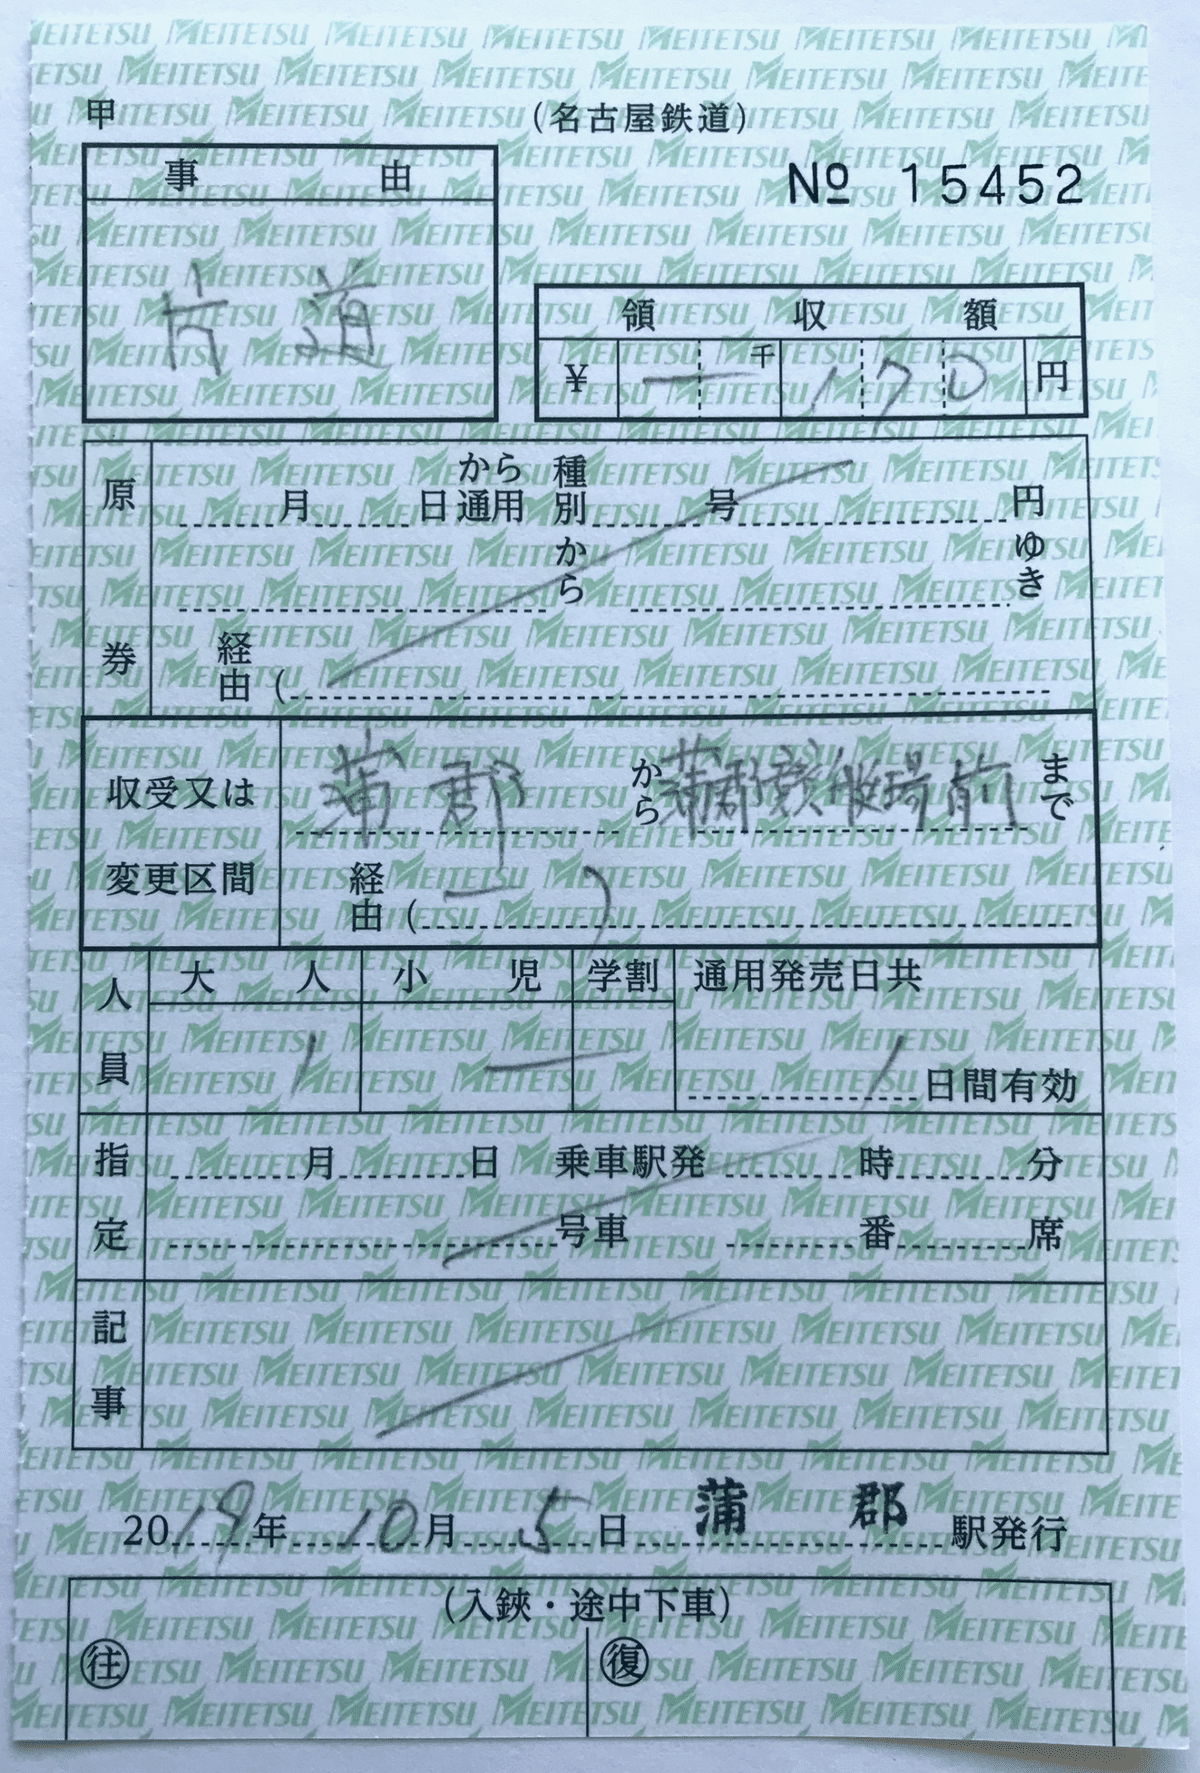 甲
(名古屋鉄道)
事由
片道
№ 15452
領収額
¥ 一 千 170 円
原券
月 日から通用 種別 号 円
から ゆき
経由 (
収受又は変更区間
蒲郡 から 蒲郡競艇場前 まで
経由 ( ー )
人員
大人 小児 学割 通用発売日共
1 ー 1 日間有効
指定
月 日 乗車駅発 時 分
号車 番 席
記事
2019年 10月 5日 蒲郡 駅発行
(入鋏・途中下車)
往 復
MEITETSU